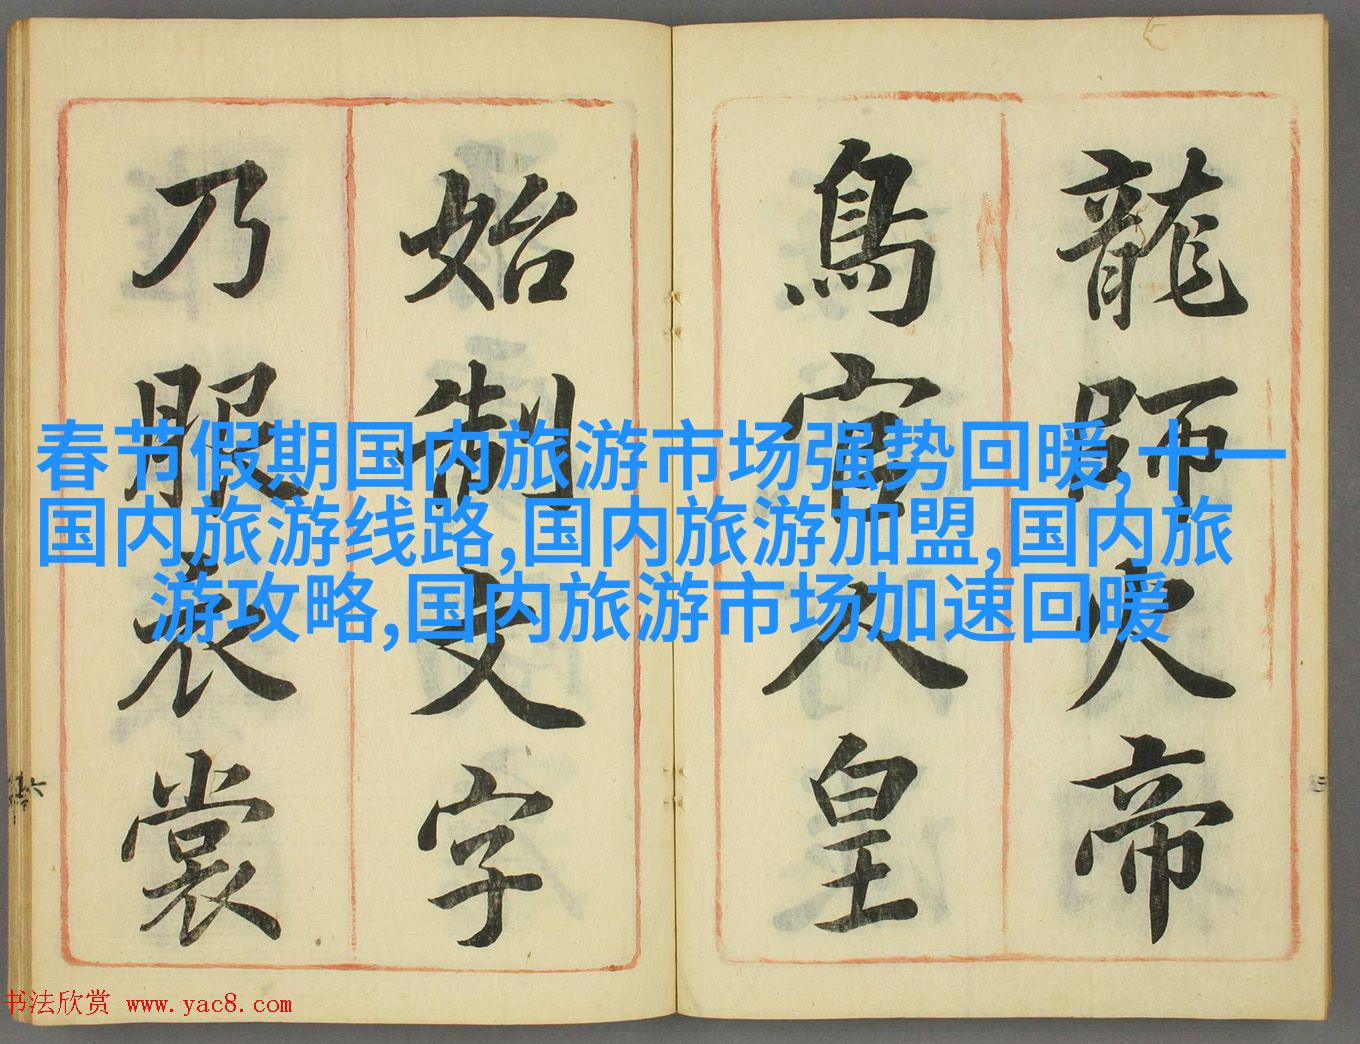 龍師火帝
鳥官人皇
始制文字
乃服衣裳
春节假期国内旅游市场强势回暖,十一
国内旅游线路,国内旅游加盟,国内旅
游攻略,国内旅游市场加速回暖
书法欣赏 www.yac8.com